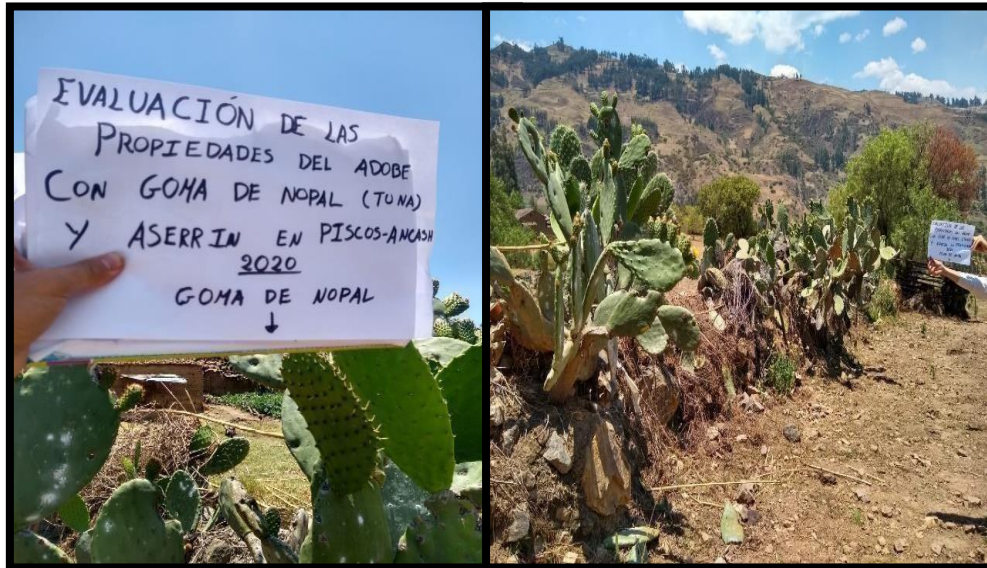 EVALUACIÓN DE LAS
PROPIEDADES DEL ADOBE
CON GOMA DE NOPAL (TUNA)
Y ASERRIN EN PISCOS-ANCASH
2020
GOMA DE NOPAL